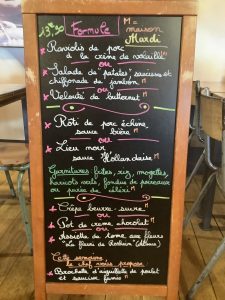 13€50 Formule M = maison
Mardi
Raviolis de porc M
à la crème de volaille M
ou
Salade de patates saucisses et
chiffonade de jambon M
ou
Velouté de butternut M
Rôti de porc échine
sauce bière M
ou
Lieu noir
sauce Hollandaise M
Garnitures: frites, riz, mogettes,
haricots verts, fondue de poireaux
ou purée de céleri M
Crêpe beurre-sucre M
ou
Pot de crème chocolat M
ou
Assiette de tome aux fleurs
Cette semaine
le chef vous propose
Brochette d'aiguillette de poulet
et saucisse fumée M